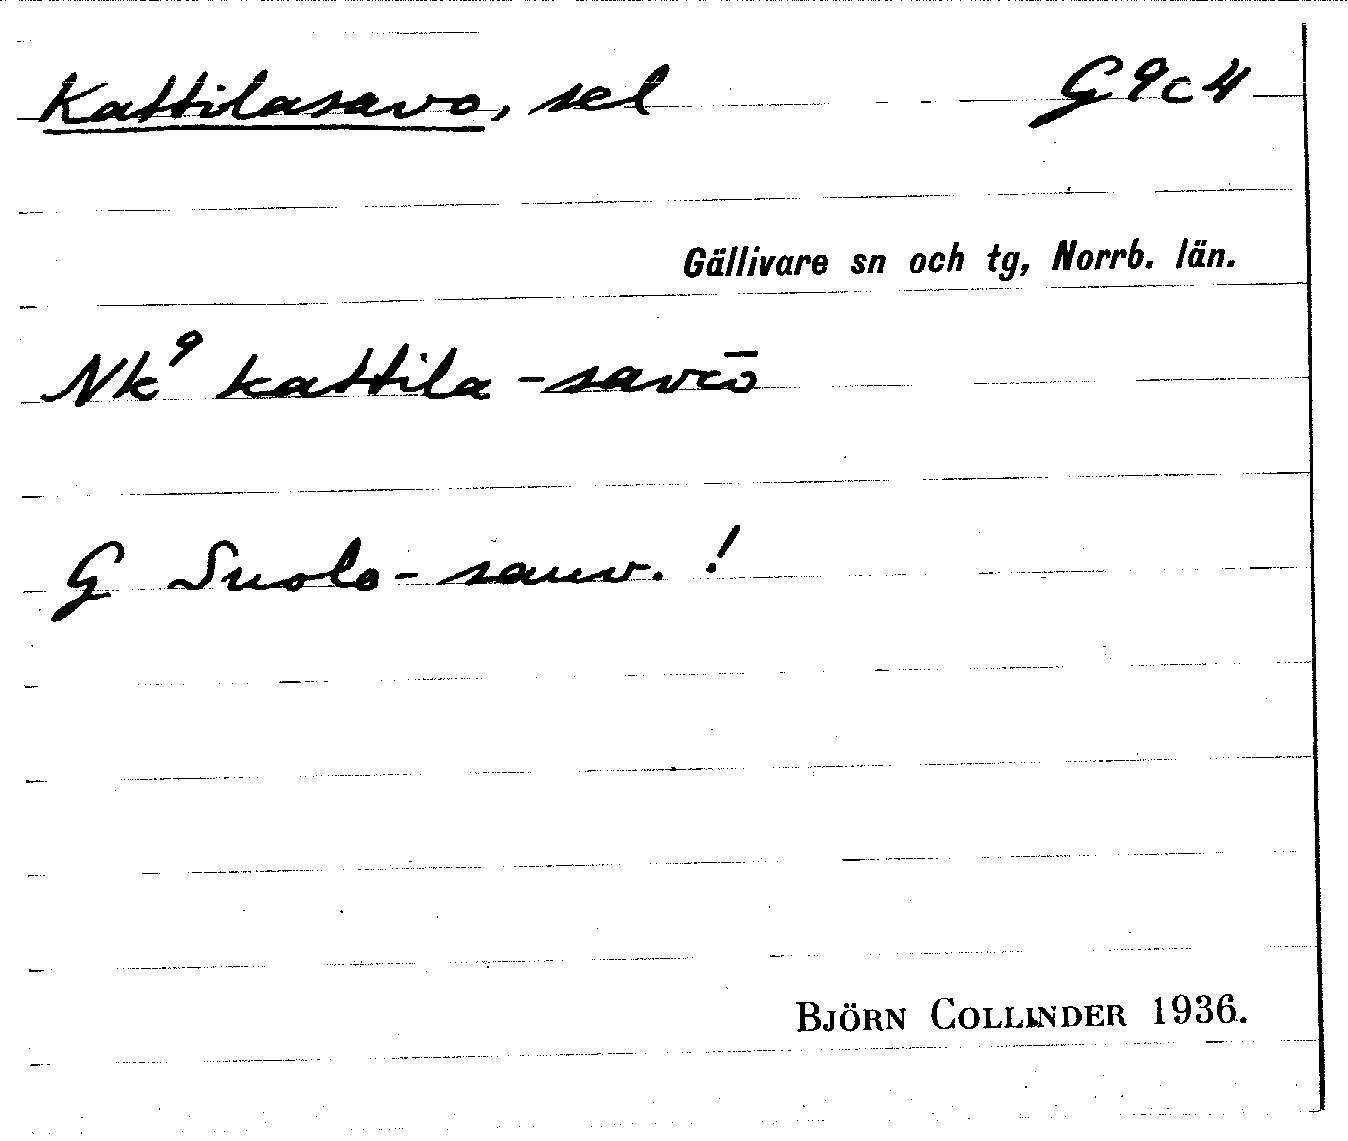 Kattilasavo, sel G9c4
Gällivare sn och tg, Norrb. län.
Nk⁹ kattila-savcō
G Suolo-sauv. !
BJÖRN COLLINDER 1936.